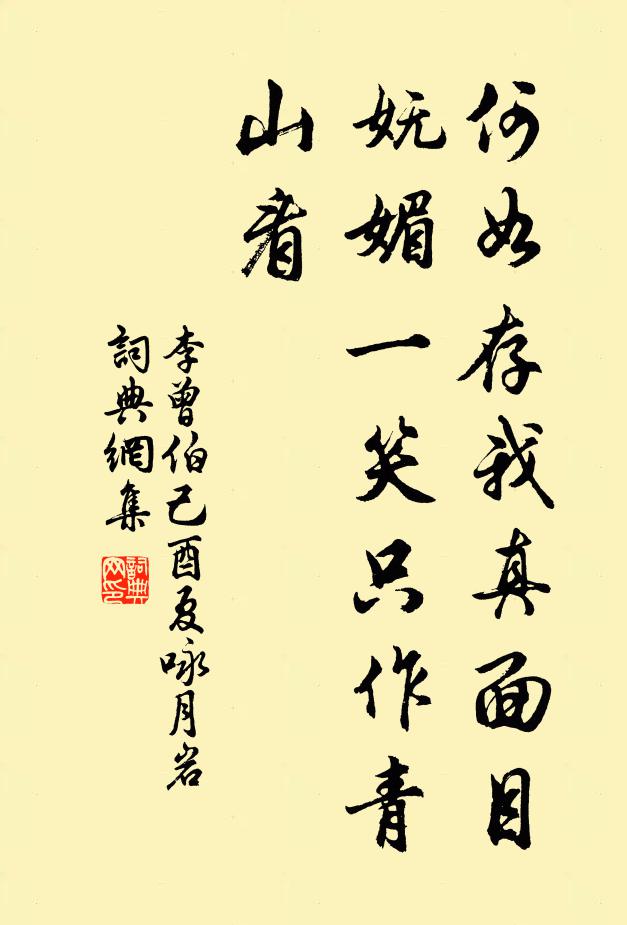 何如存我真面目
妩媚一笑只作青
山看
李曾伯己酉夏咏月岩
詞典網集
詞典网印